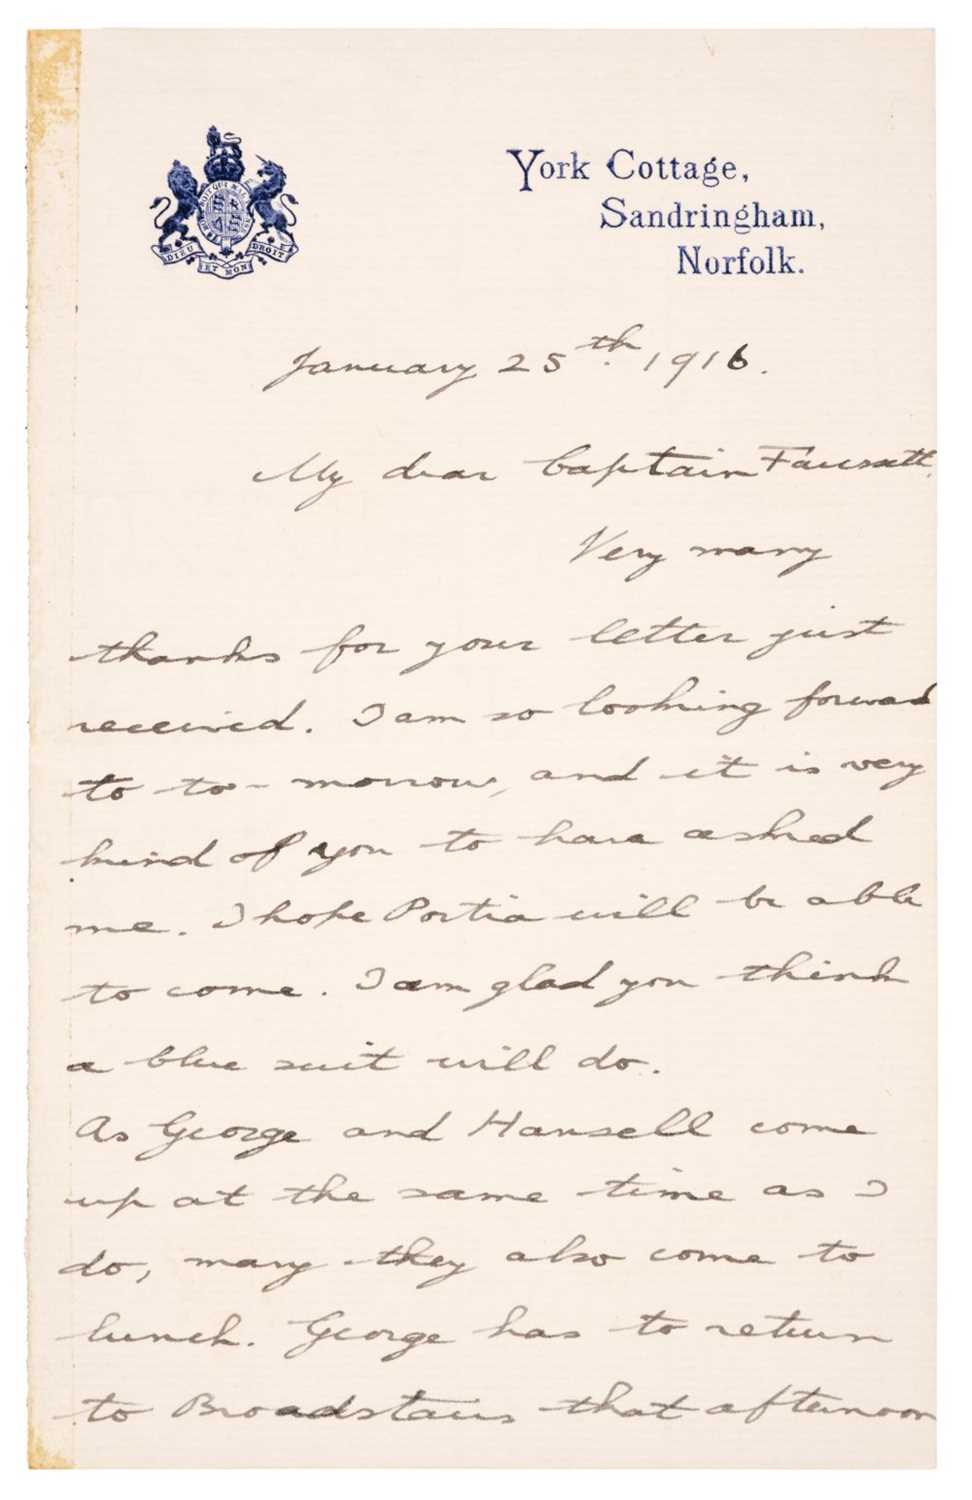 York Cottage,
Sandringham,
Norfolk.
DIEU ET MON DROIT
January 25th. 1916.
My dear Captain Faussett,
Very many
thanks for your letter just
received. I am so looking forward
to to-morrow, and it is very
kind of you to have asked
me. I hope Portia will be able
to come. I am glad you think
a blue suit will do.
As George and Hansell come
up at the same time as I
do, many they also come to
lunch. George has to return
to Broadstairs that afternoon